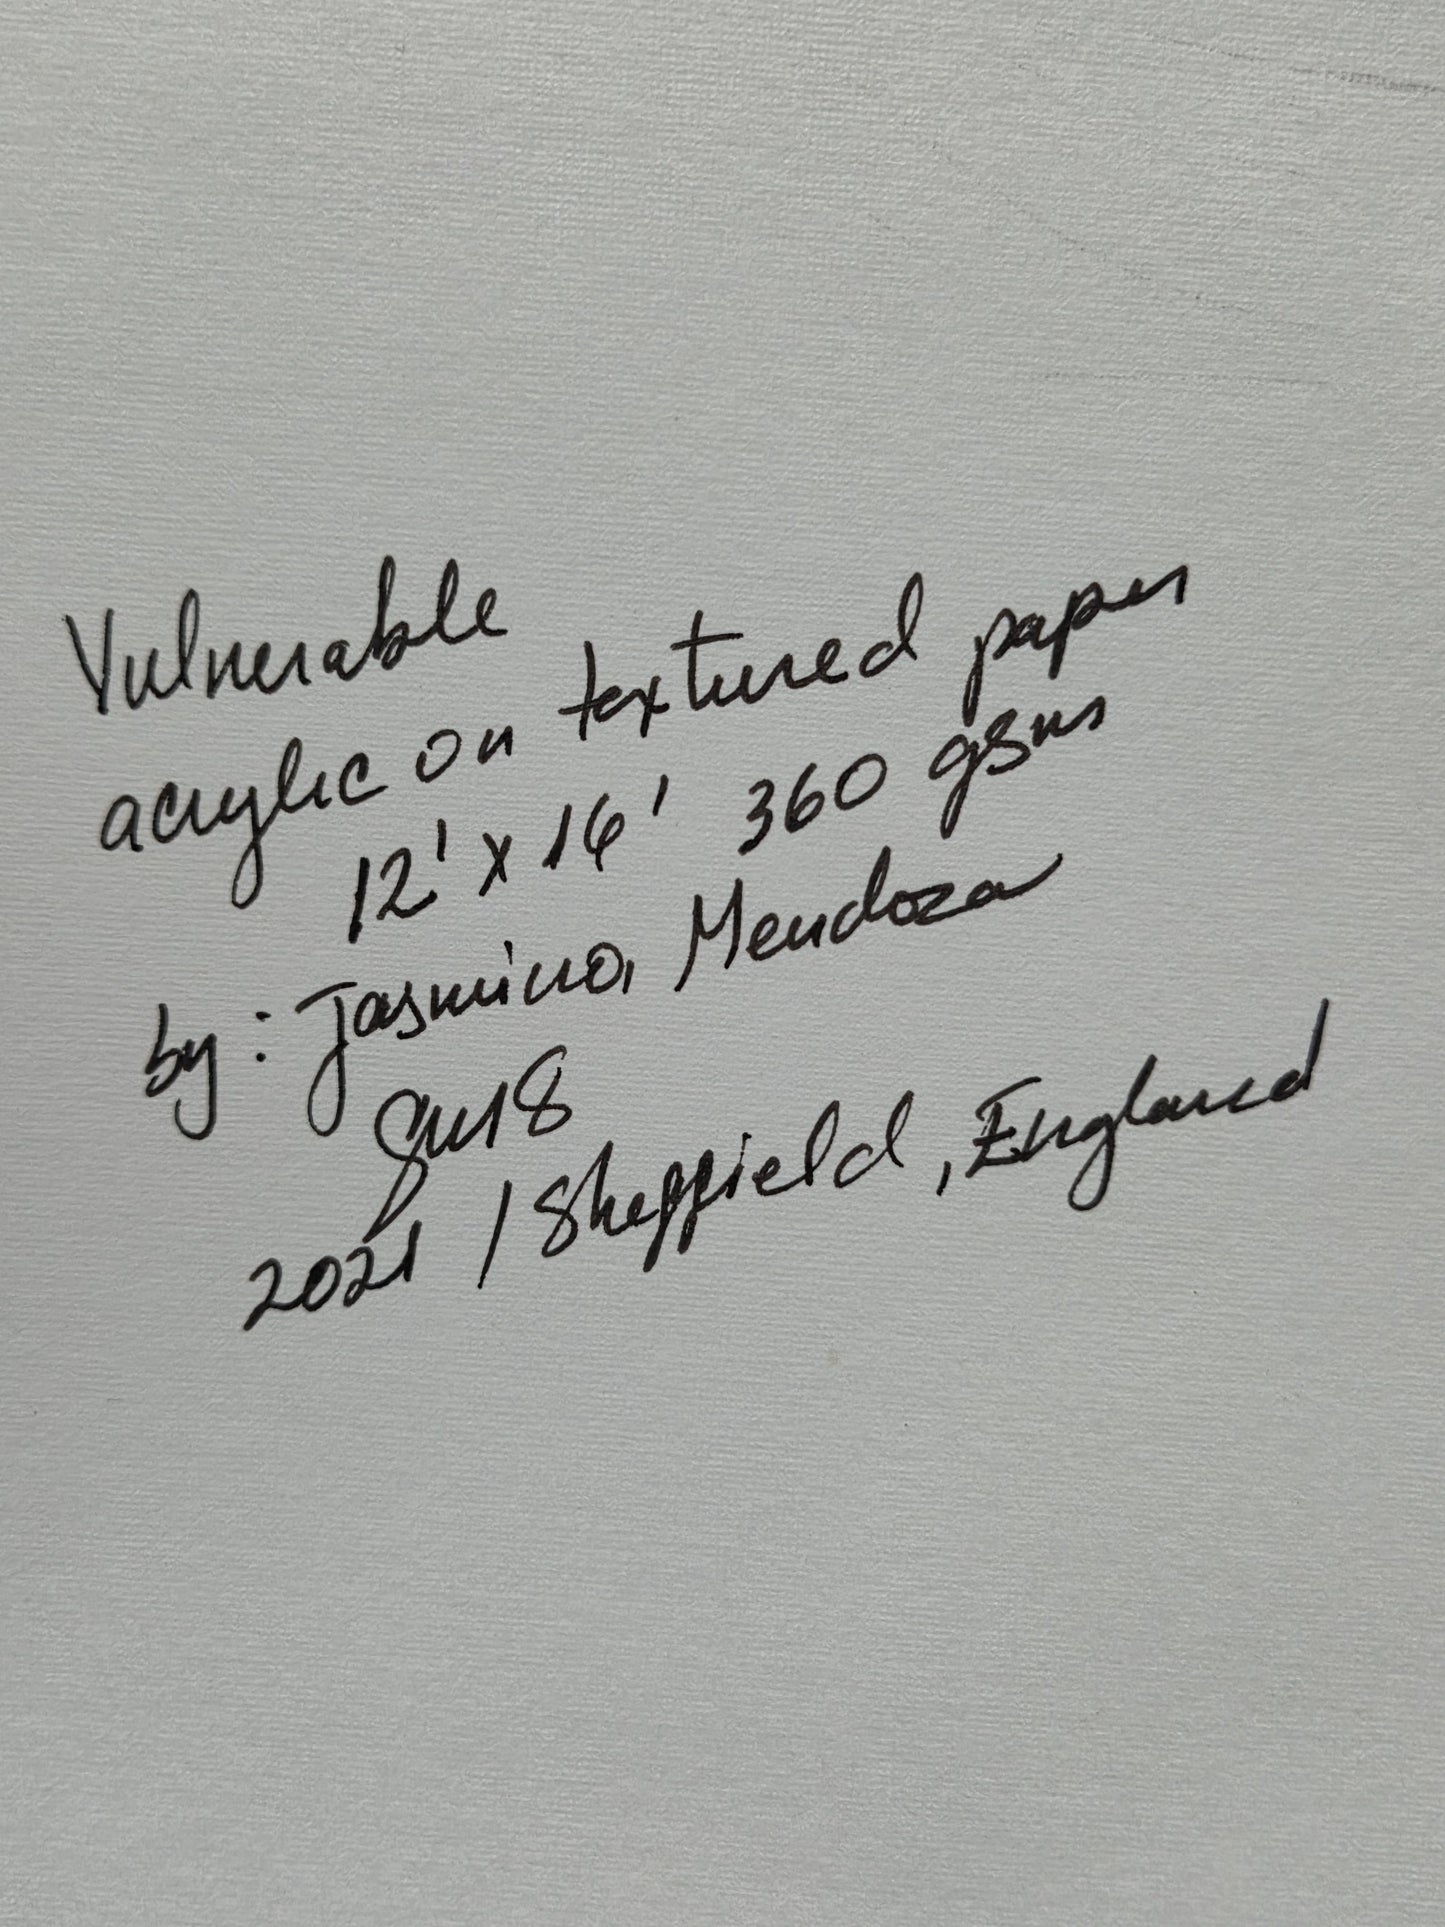 Vulnerable
acrylic on textured paper
12' x 16' 360 gsms
by: Jasmina Mendoza
2021 / Sheffield, England